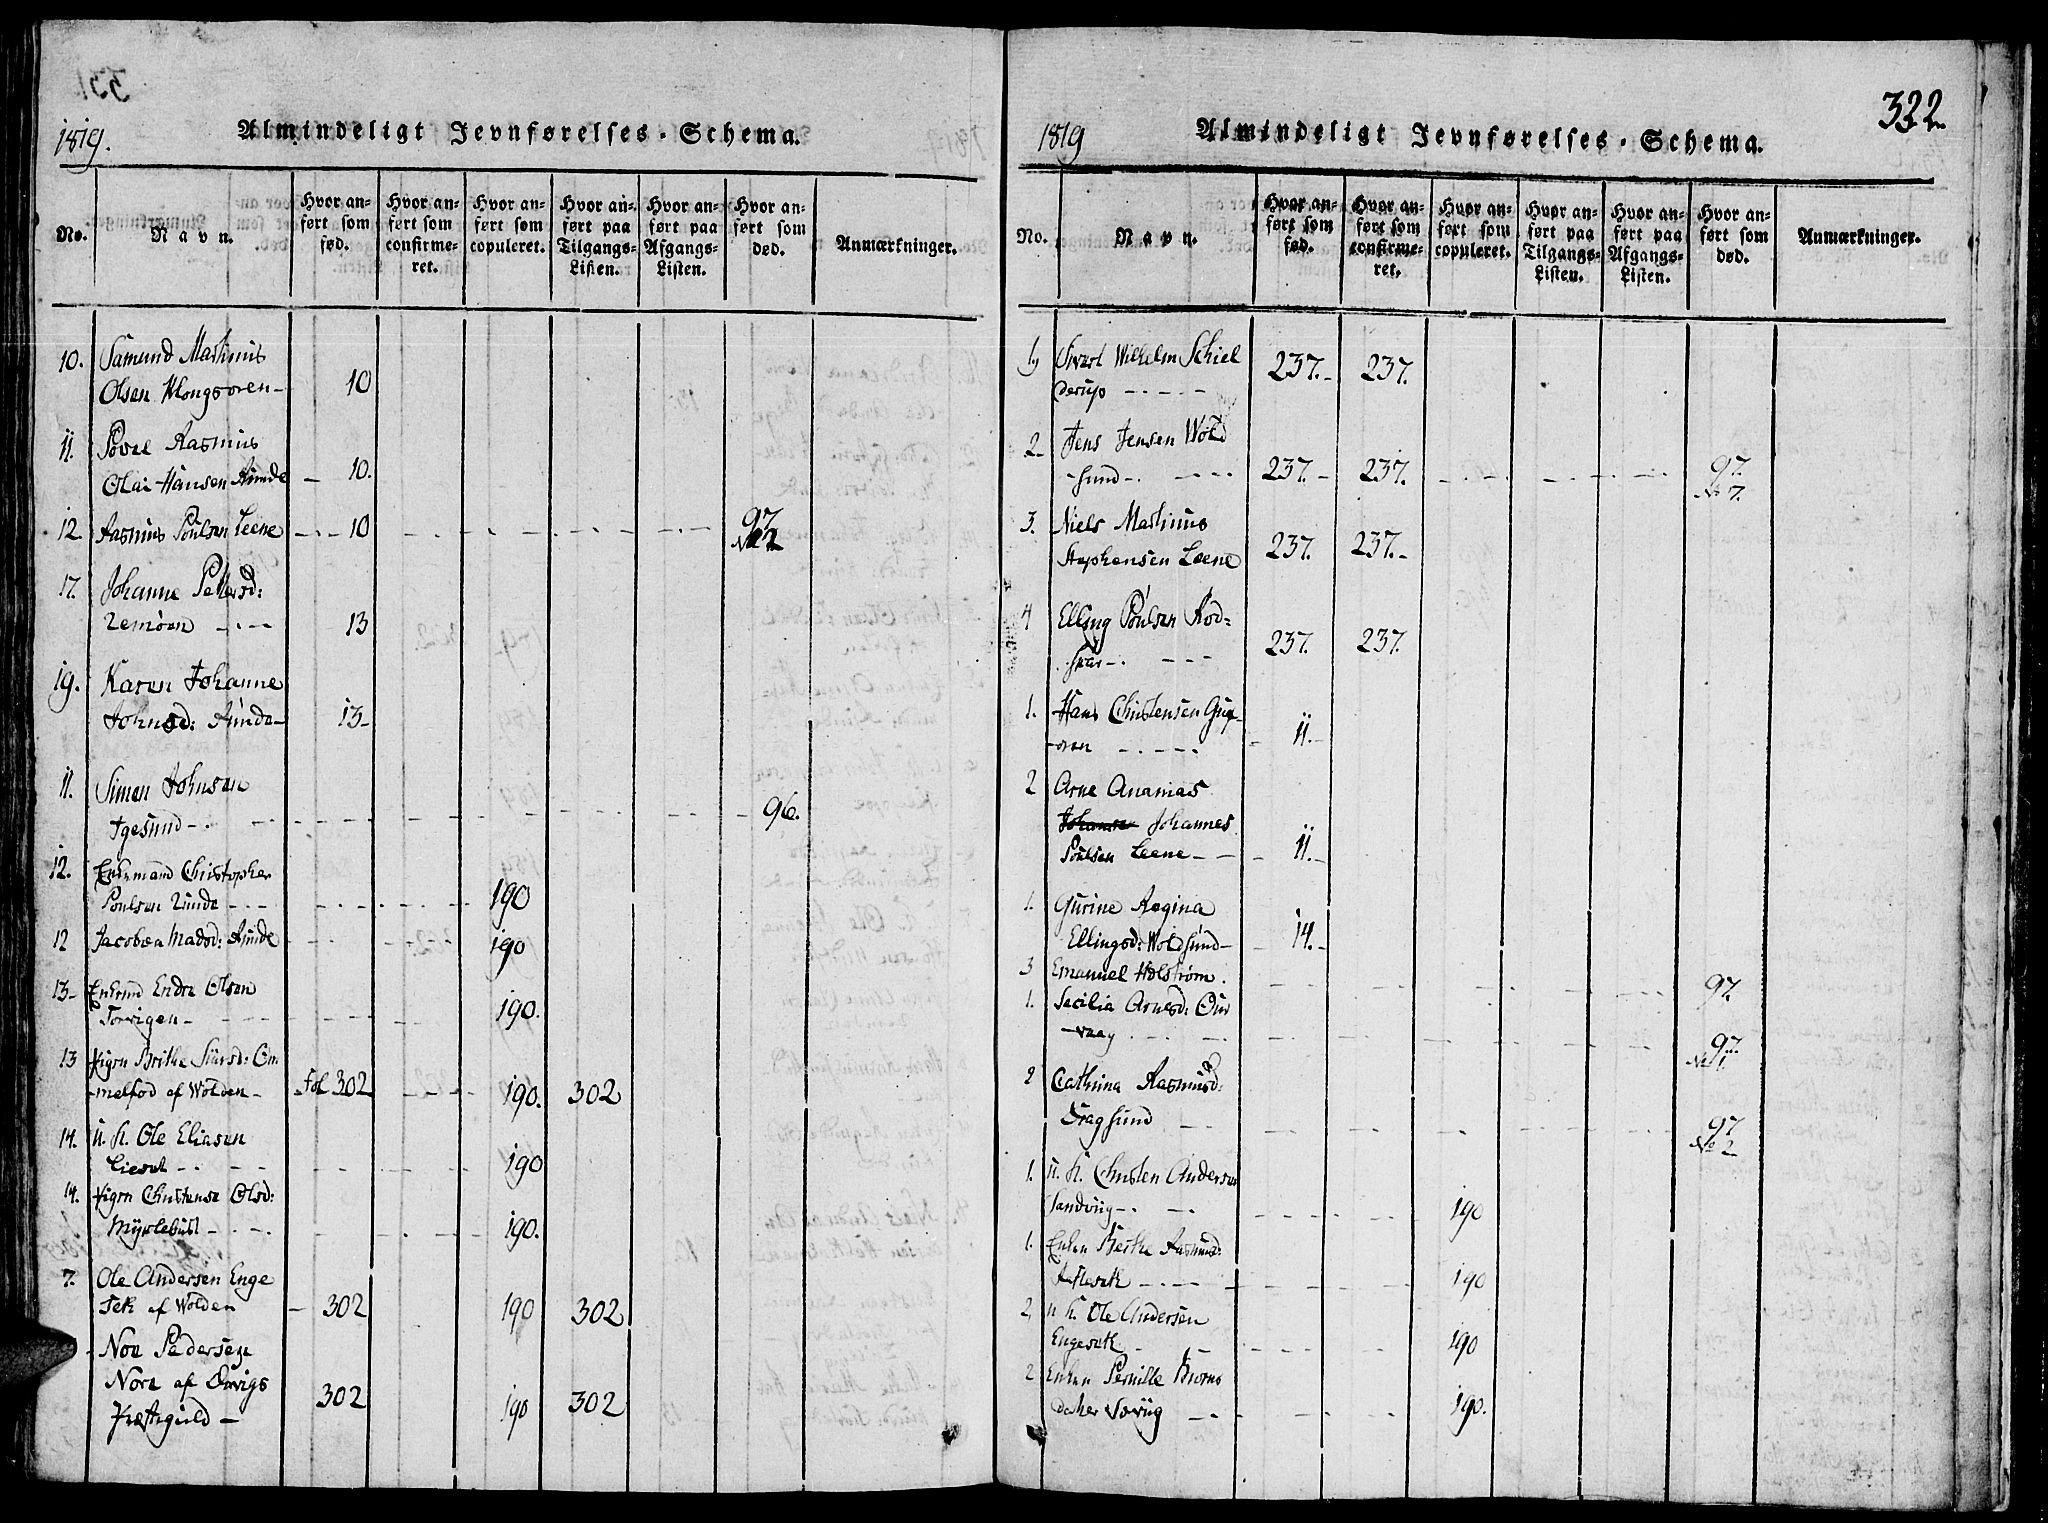 1819.
Almindeligt Jevnførelses-Schema.
No.
Navn.
Hvor anført som fød.
Hvor anført som confirmeret.
Hvor anført som copuleret.
Hvor anført paa Tilgangs-Listen.
Hvor anført paa Afgangs-Listen.
Hvor anført som død.
Anmærkninger.
10. Samund Martinus
Olsen Klongsoren - 10
11. Povel Rasmus
Olai Hansen Runde - 10.
12. Rasmus Poulsen Leene - 10 97
No 2
17. Johanne Pettersd:
Remöen - 13
19. Karen Johanne
Johnsd: Runde - 13 -
11. Simen Johnsen
Igesund - 96.
12. Enkemand Christopher
Poulsen Runde - 190
12 Jacobæa Madsd: Runde 190
13 - Endre Olsen
Torvigen - 190.
13 Pigen Brithe Siursd:
af Wolden - Fol 302 190. 302
14. u. k. Ole Eliasen
Liesæt - 190
14. Pigen Christense Olsd:
Myklebust - 190.
7. Ole Andersen Enge
sek af Wolden - 302 190 302
Noe Pedersen
Nore af Ørvigs
Præstegield - 302 190 302
322
1819
Almindeligt Jevnførelses-Schema.
No.
Navn.
Hvor anført som fød.
Hvor anført som confirmeret.
Hvor anført som copuleret.
Hvor anført paa Tilgangs-Listen.
Hvor anført paa Afgangs-Listen.
Hvor anført som død.
Anmærkninger.
1, Sivert Wilhelm Schiel
derup - 237. - 237.
2 Jens Jensen Wold
sund - 237. - 237. 97.
No 7.
3. Niels Martinus
Stephensen Leene 237. 237. -
4 Elling Poulsen Rod-
skar - 237. 237.
1. Hans Christensen Gur-
oren - 11. -
2 Arne Ananias
Johannes Johannes
Poulsen Leene - 11. -
1. Gurine Regina
Ellingsd: Woldsund - 14. -
3 Emanuel Holstrøm. 97.
1. Secilia Arnesd:
vaag - 97.
No 1.
2 Cathrina Rasmusd:
Dragsund 97
No 2
1. u. k. Christen Andersen
Sandvig - 190
1. Enken Berthe Rasmusd:
Refsesæth - 190
2, u k. Ole Andersen
Engesæth - 190
2 Enken Pernille
190.